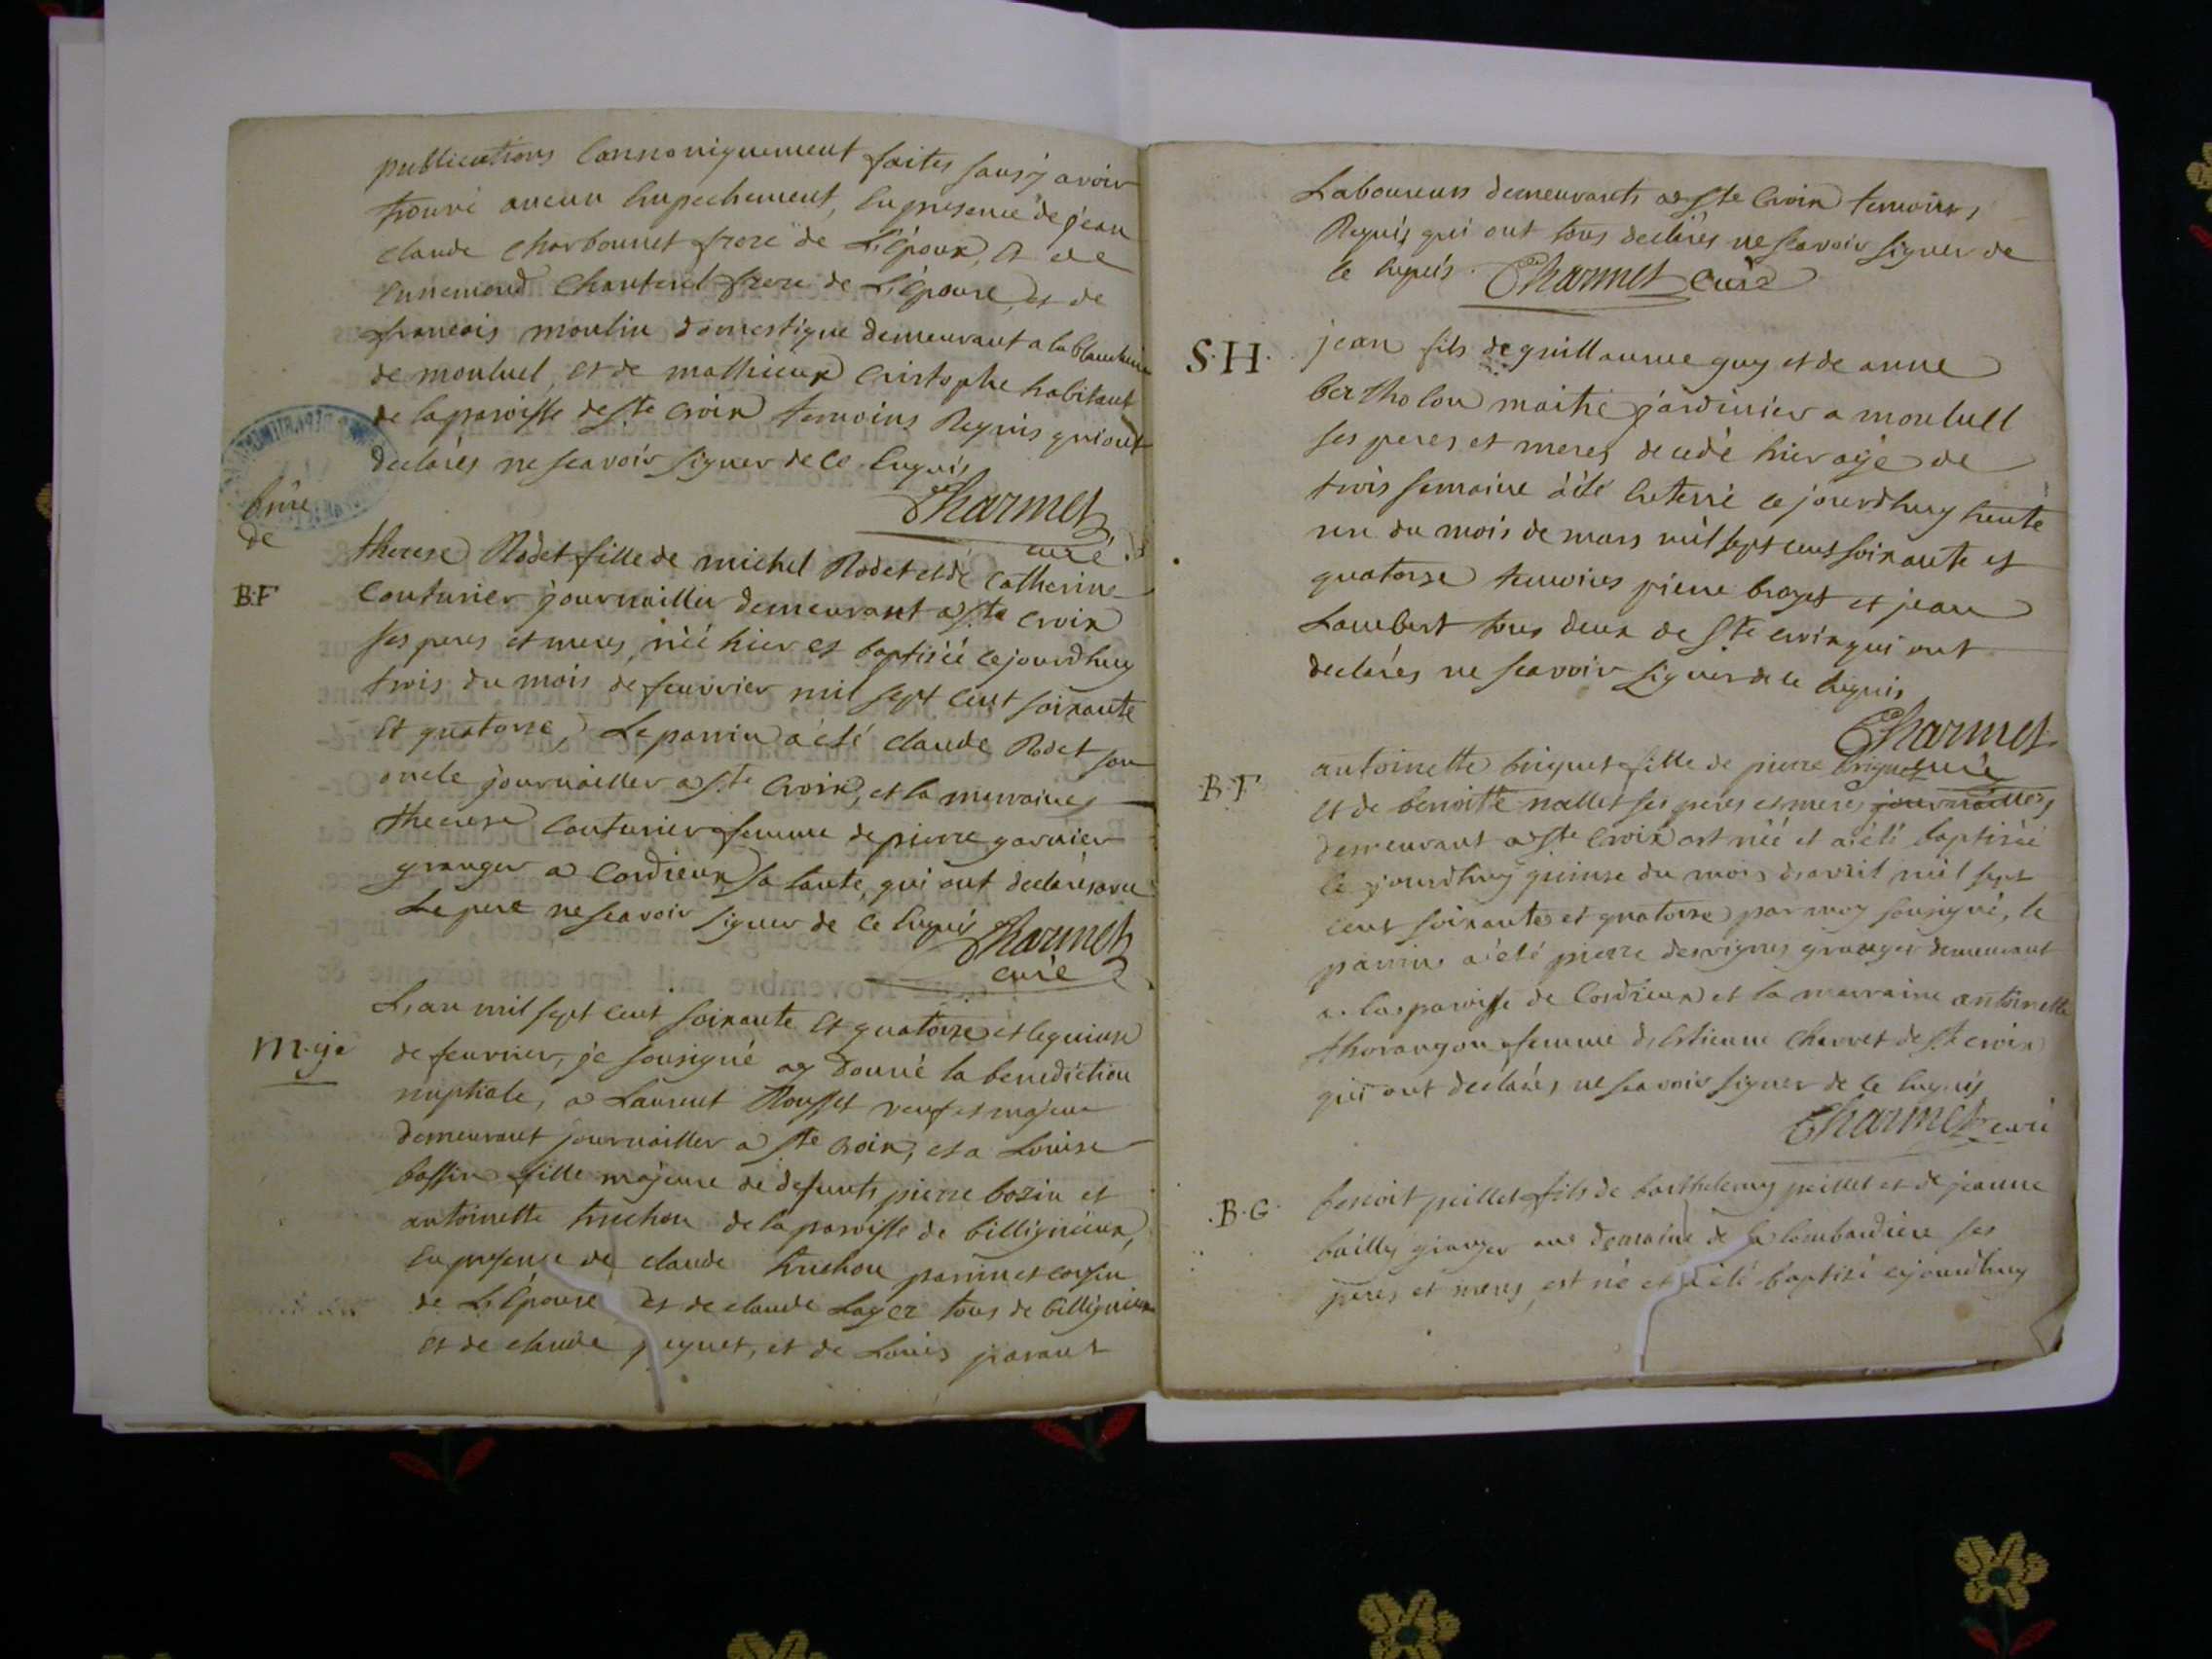 publications cannoniquement faites sans y avoir
trouvé aucun empechement, en presence de jean
claude charbonnet frere de L'époux, et de
ennemond chanterel frere de L'épouse, et de
francois moulin domestique demeurant a la
de monluel, et de mathieux cristophe habitant
de la paroisse de Ste croix temoins Requis qui ont
declarés ne scavoir signer de ce enquis
Charmet
curé
B·F
therese Rodet fille de michel Rodet et de catherine
couturier journailler demeurant a Ste croix
ses peres et meres, néé hier et baptiséé cejourdhuy
trois du mois de feuvrier mil sept cent soixante
et quatorse, Le parrin a été claude Rodet son
oncle journailler a Ste Croix, et la marraine
therese couturier femme de pierre garnier
granger a Cordieux sa tante, qui ont declarés avec
Le pere ne scavoir signer de ce enquis Charmet
curé
L'an mil sept cent soixante et quatorse et le quinse
m·ge de feuvrier, je sousigné ay donné la benediction
nuptiale, a Laurent Rousset veuf et majeur
demeurant journailler a Ste croix, et a Louise
bassin fille majeure de defunts pierre bozin et
antoinette truchon de la paroisse de billignieux,
en presence de claude truchon parrin et cousin
de L'épouse et de claude Loyer tous de billignieux
et de claude peguet, et de Louis parant
Laboureurs demeurants a Ste Croix temoins
Requis qui ont tous declarés ne scavoir signer de
ce enquis. Charmet Curé
S·H· jean fils de guillaume guy et de anne
bertholon maitre jardinier a monluell
ses peres et meres decedé hier agé de
trois semaine a été enterré ce jourdhuy trente
un du mois de mars mil sept cent soixante et
quatorse temoins pierre brozet et jean
Lambert tous deux de Ste croix qui ont
declarés ne scavoir signer de ce enquis
Charmet
curé
·B·F· antoinette briguet fille de pierre briguet
et de benoitte nallet ses peres et meres journailler
demeurant a Ste Croix est néé et a été baptiséé
ce jourdhuy quinse du mois d'avril mil sept
cent soixante et quatorse par moy sousigné, le
parrin a été pierre desvignes granger demeurant
a la paroisse de Cordieux et la marraine antoinette
thorangon femme d'estienne charvet de Ste croix
qui ont declarés ne scavoir signer de ce enquis
Charmet curé
·B·G· benoit peillet fils de barthelemy peillet et de jeanne
bailly granger au domaine de la lombardiere ses
peres et meres, est né et a été baptisé cejourdhuy